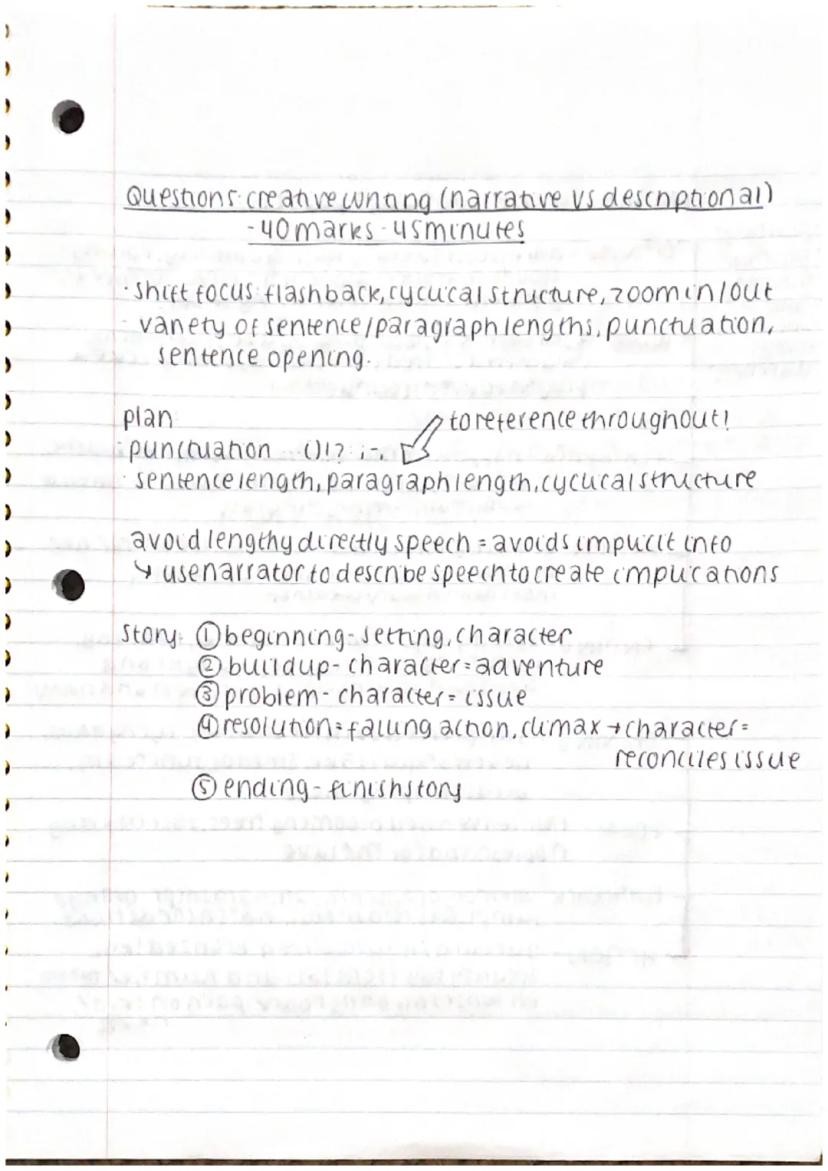 Question 5: creative writing (narrative vs descriptional)
- 40 marks - 45 minutes
· shift focus: flashback, cyclical structure, zoom in/out
· variety of sentence/paragraph lengths, punctuation,
sentence opening.
plan
to reference throughout!
· punctuation ()!? ; -
· sentence length, paragraph length, cyclical structure
avoid lengthy directly speech = avoids implicit info
↳ use narrator to describe speech to create implications
story: ① beginning - setting, character
② buildup - character = adventure
③ problem - character = issue
④ resolution = falling action, climax → character =
reconciles issue
⑤ ending - finish story